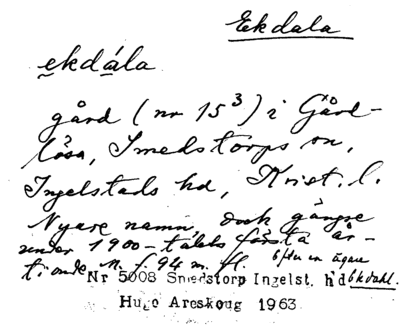 Ekdala
ekdála
gård (nr 15³) i Gård-
lösa, Smedstorps sn,
Ingelstads hd, Krist. l.
Nyare namn, dock gängse
under 1900-talets första år-
tionde. M. f. 94 m. fl. Efter en ägare
Nr 5008 Smedstorp Ingelst. hd Ekdahl.
Hugo Areskoug 1963